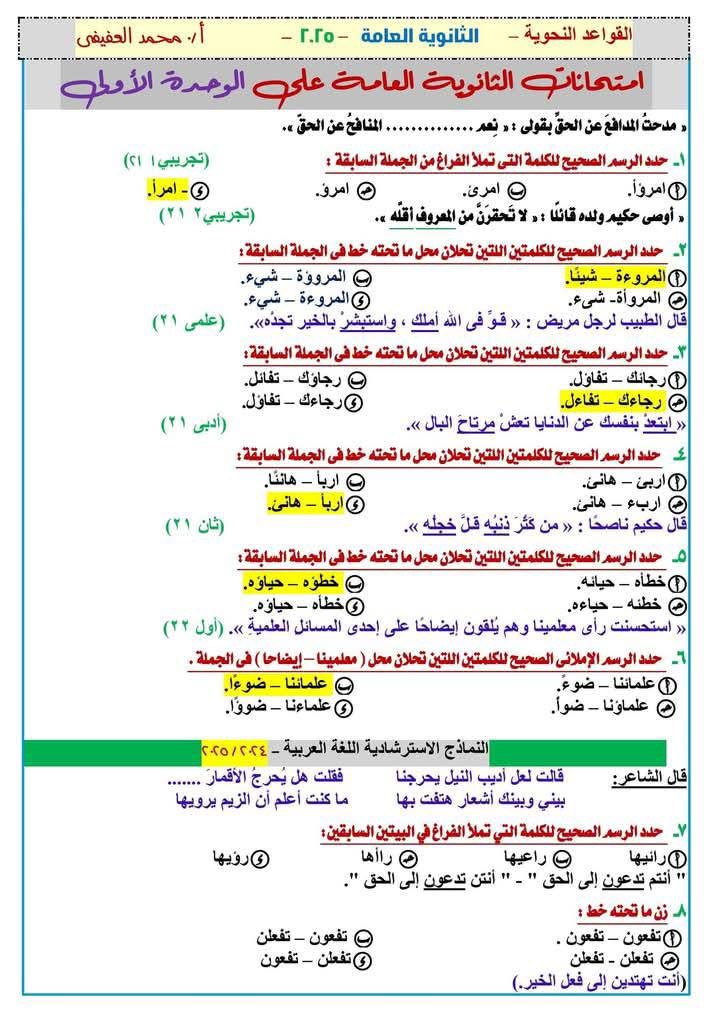 القواعد النحوية – الثانوية العامة – ٢٠٢٥ – أ/ محمد العفيفي
امتحانات الثانوية العامة على الوحدة الأولى
« مدحتُ المدافعَ عن الحقِّ بقولى : « نِعم .............. المنافحُ عن الحقّ ».
١ـ حدد الرسم الصحيح للكلمة التى تملأ الفراغ من الجملة السابقة : (تجريبي١ ٢١)
أ امروأ. ب امرئ. جـ امرؤ. د - امرأ.
« أوصى حكيم ولده قائلًا : « لا تَحقرَنَّ من المعروف أقلَّه ». (تجريبي٢ ٢١)
٢ـ حدد الرسم الصحيح للكلمتين اللتين تحلان محل ما تحته خط فى الجملة السابقة :
أ المروءة – شيئًا. ب المروؤة – شيء.
جـ المروأة- شىء. د المروءة – شيء.
قال الطبيب لرجل مريض : « قـوِّ فى الله أملك ، واستبشرْ بالخير تجدْه». (علمى ٢١)
٣ـ حدد الرسم الصحيح للكلمتين اللتين تحلان محل ما تحته خط فى الجملة السابقة :
أ رجائك – تفاؤل. ب رجاؤك – تفائل.
جـ رجاءك – تفاءل. د رجاءك – تفاؤل.
« ابتعدْ بنفسك عن الدنايا تعشْ مرتاحَ البال ». (أدبى ٢١)
٤ـ حدد الرسم الصحيح للكلمتين اللتين تحلان محل ما تحته خط فى الجملة السابقة :
أ اربئ – هانئ. ب اربأ – هانئًا.
جـ اربء – هانئ. د اربأ – هانئ.
قال حكيم ناصحًا : « من كَثُرَ ذنبُه قـلَّ خجلُه ». (ثان ٢١)
٥ـ حدد الرسم الصحيح للكلمتين اللتين تحلان محل ما تحته خط فى الجملة السابقة :
أ خطأه – حيائه. ب خطؤه – حياؤه.
جـ خطئه – حياءه. د خطأه – حياؤه.
« استحسنت رأى معلمينا وهم يُلقون إيضاحًا على إحدى المسائل العلميةِ ». (أول ٢٢)
٦ـ حدد الرسم الإملائى الصحيح للكلمتين اللتين تحلان محل ( معلمينا – إيضاحا ) فى الجملة .
أ علمائنا – ضوءً. ب علمائنا – ضوءًا.
جـ علماؤنا – ضوأً. د علماءنا – ضوؤًا.
النماذج الاسترشادية اللغة العربية – ٢٠٢٤ / ٢٠٢٥
قال الشاعر: قالت لعل أديب النيل يحرجنا فقلت هل يُحرجُ الأقمارَ .......
بيني وبينك أشعار هتفت بها ما كنت أعلم أن الزيم يرويها
٧ـ حدد الرسم الصحيح للكلمة التي تملأ الفراغ في البيتين السابقين:
أ رائيها ب راعيها جـ راأها د رؤيها
" أنتم تدعون إلى الحق " - " أنتن تدعون إلى الحق ".
٨ـ زن ما تحته خط :
أ تفعون – تفعون . ب تفعون – تفعلن
جـ تفعلن - تفعلن د تفعلن – تفعون
(أنت تهتدين إلى فعل الخير.)